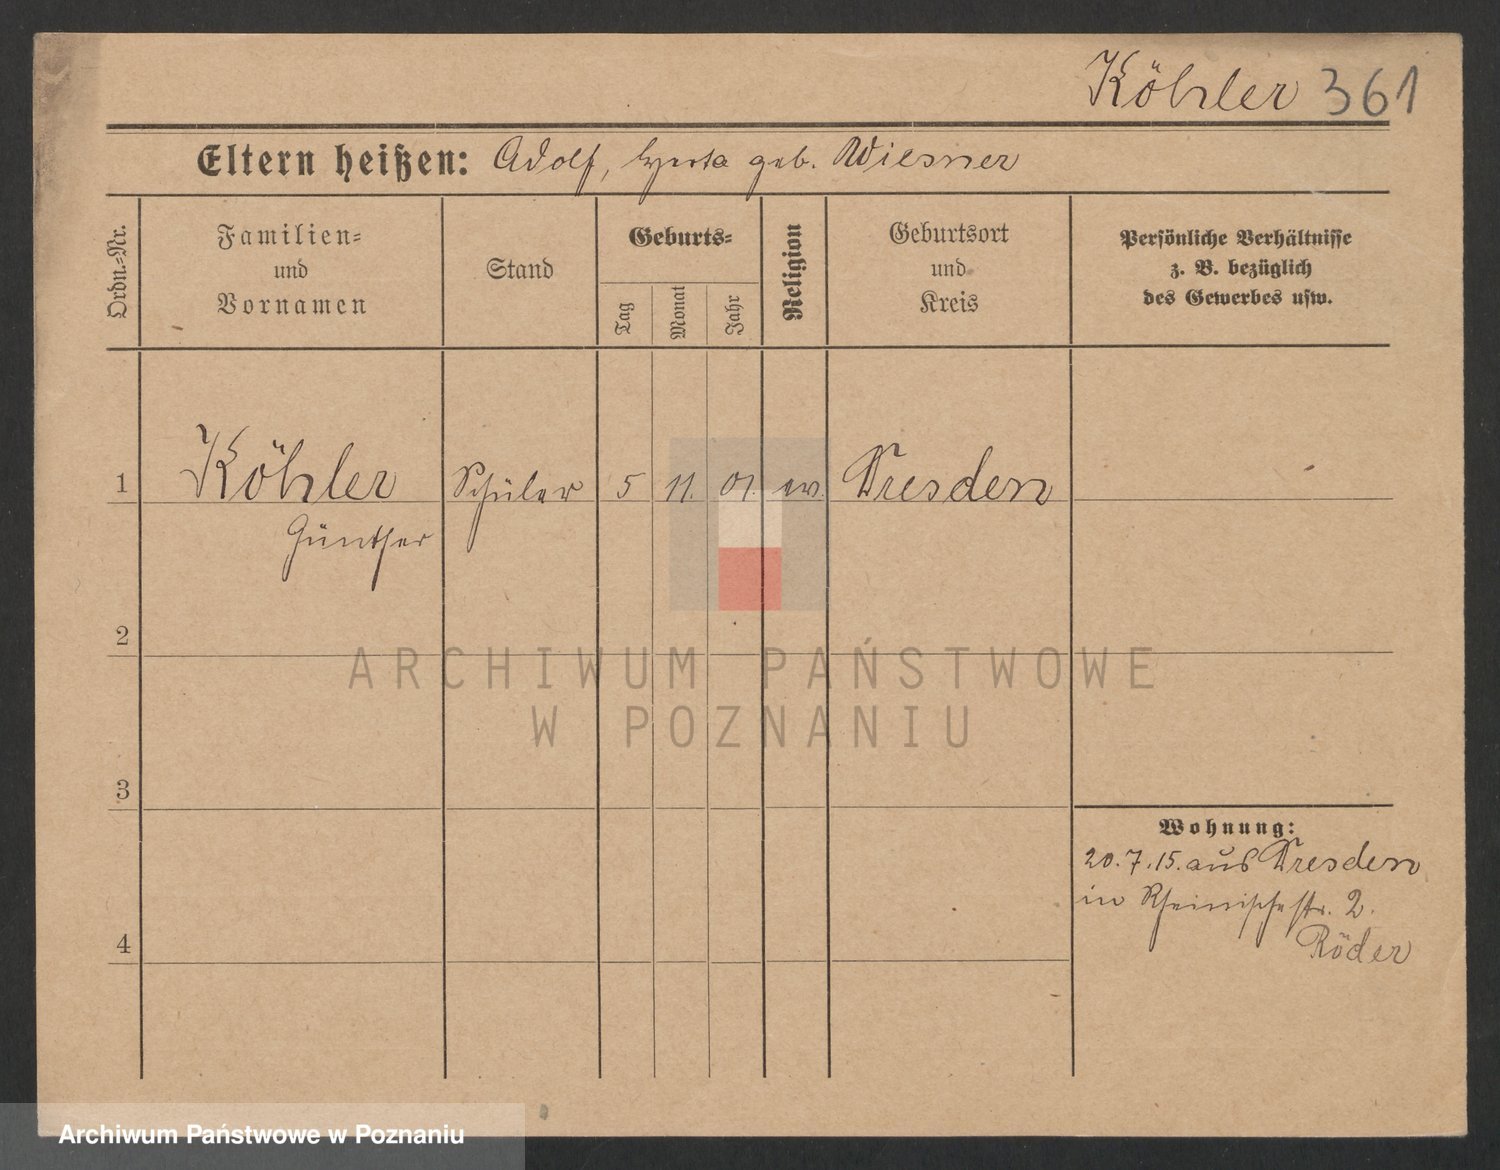 Köhler 361
Eltern heißen: Adolf, Herta geb. Wiesner
Ordn.=Nr.
Familien=
und
Vornamen
Stand
Geburts=
Tag
Monat
Jahr
Religion
Geburtsort
und
Kreis
Persönliche Verhältnisse
z. B. bezüglich
des Gewerbes usw.
1 Köhler Schüler 5 11. 01. ev. Dresden
Günther
2
ARCHIWUM PAŃSTWOWE
W POZNANIU
3
Wohnung:
20.7.15. aus Dresden
in Rheinischestr. 2.
Röder
4
Archiwum Państwowe w Poznaniu